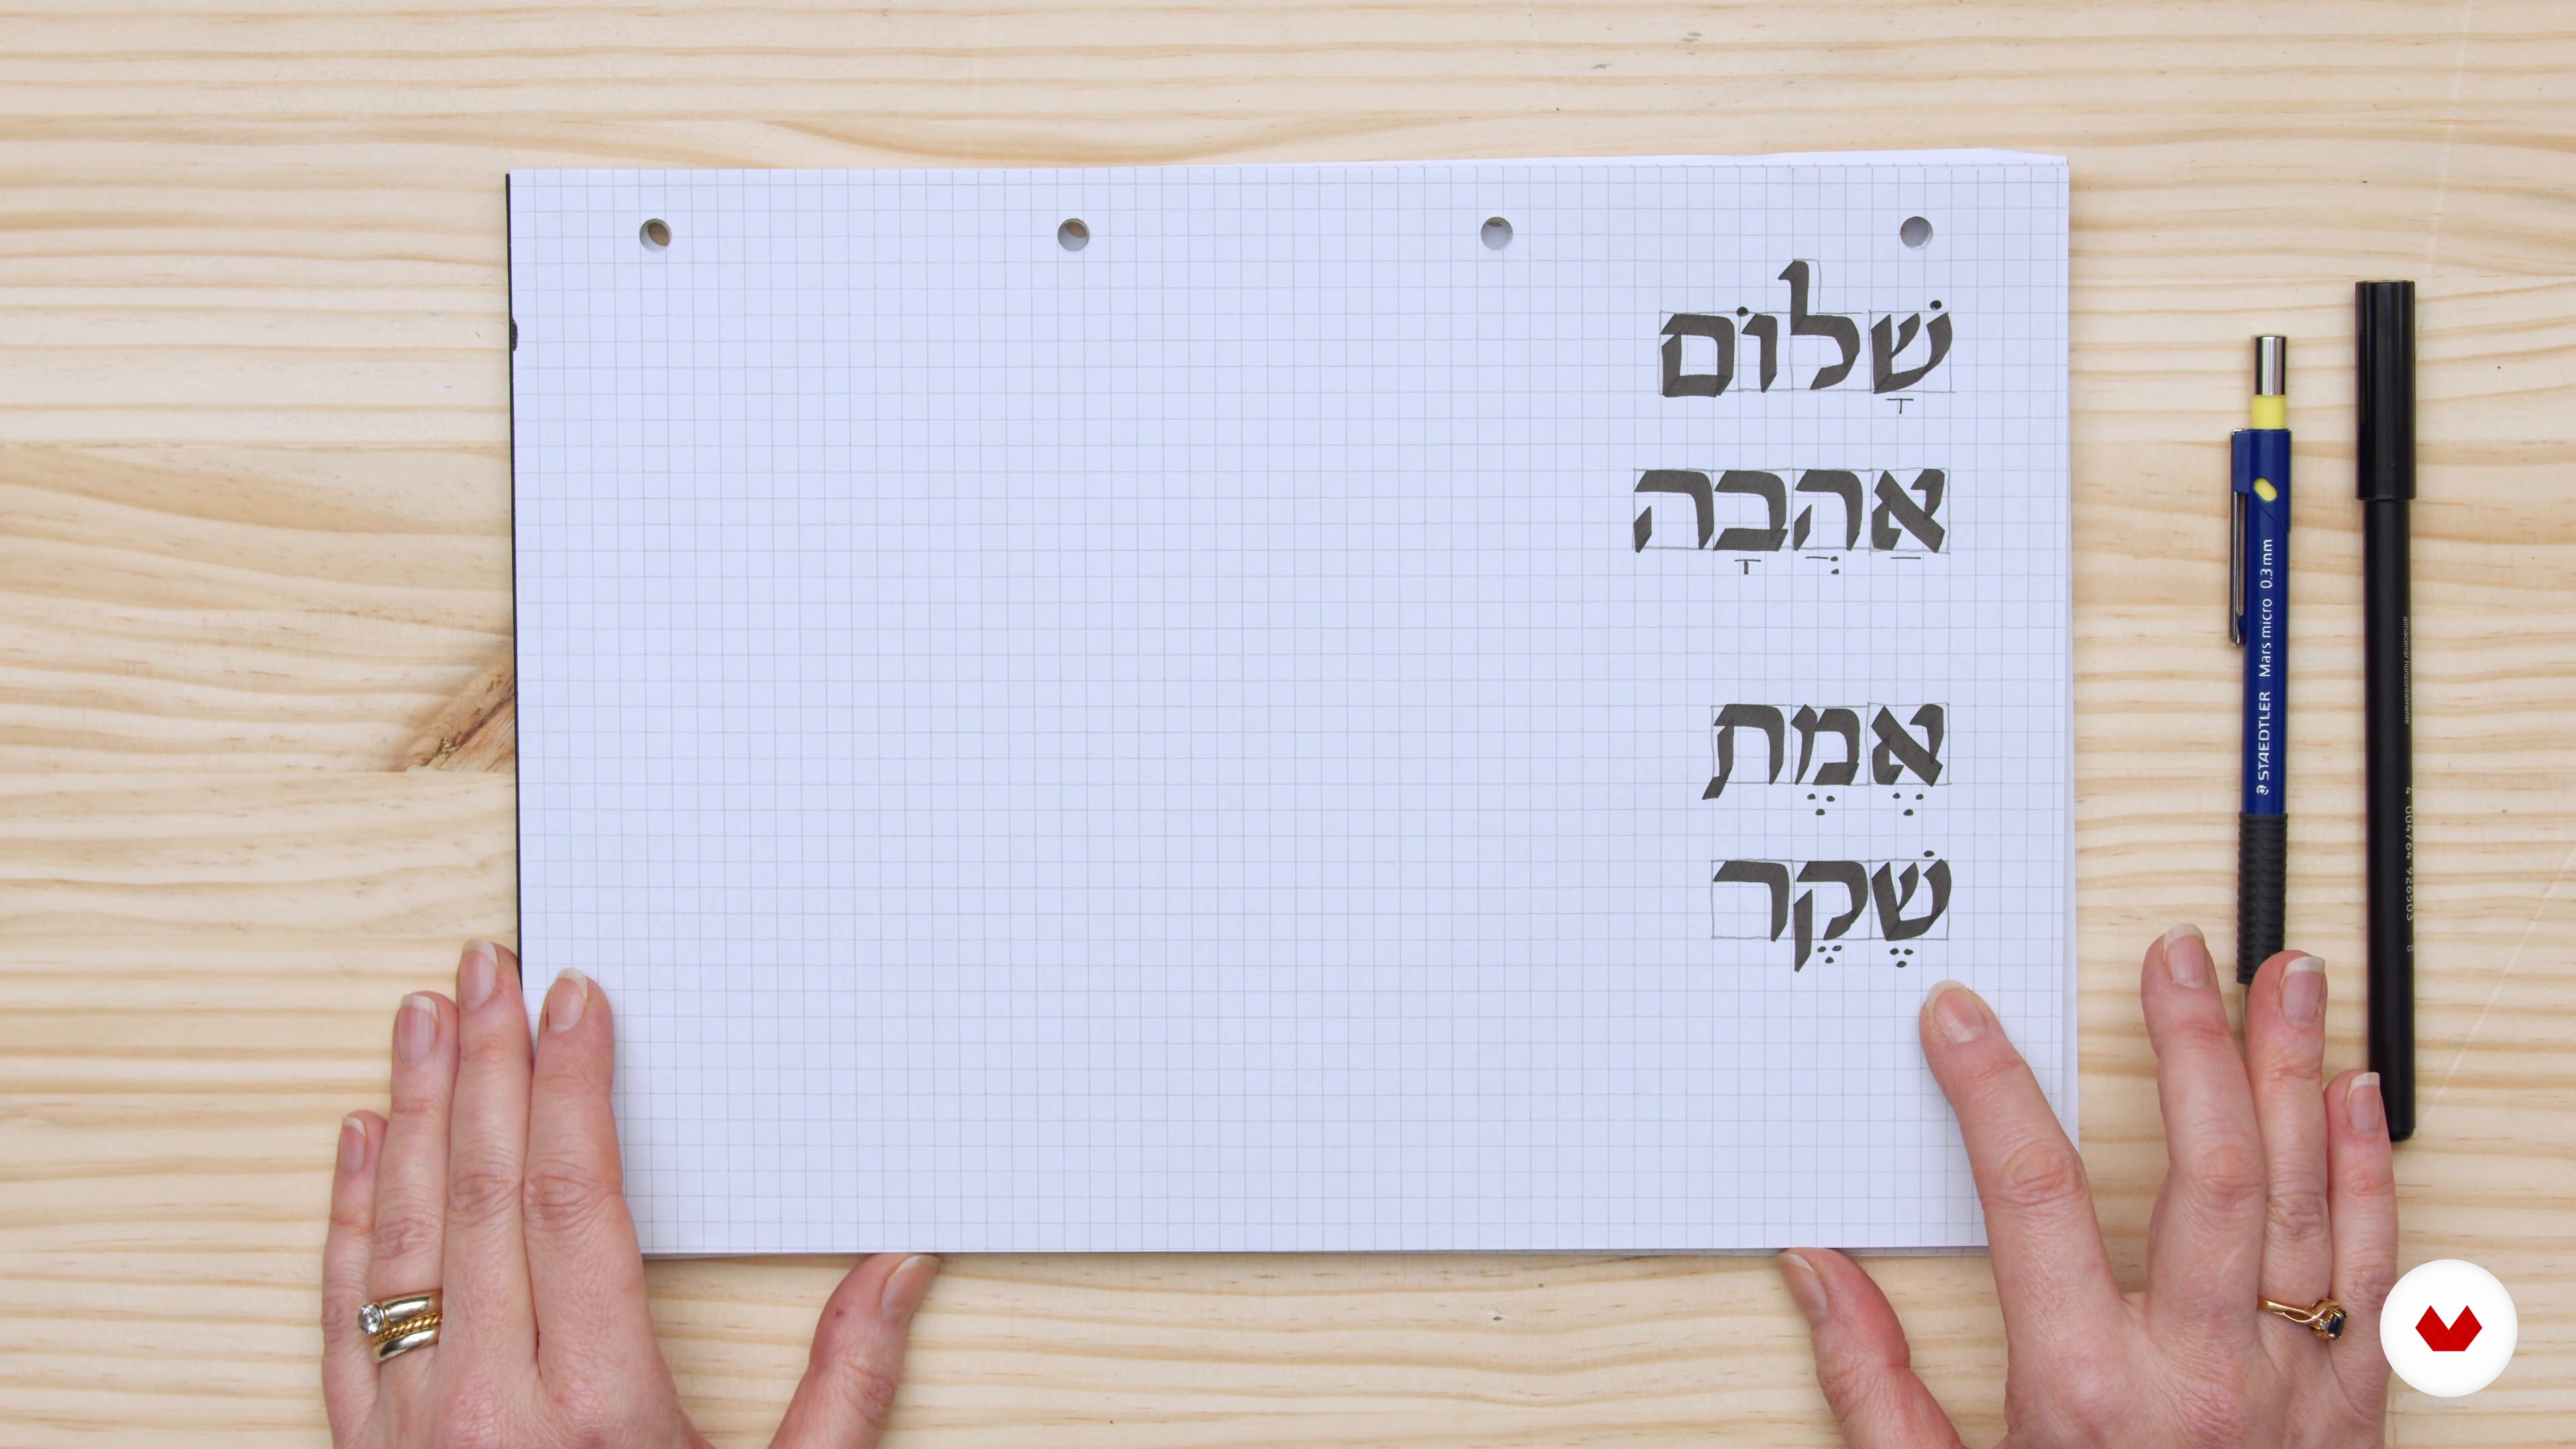 שָׁלוֹם
אַהֲבָה
אֱמֶת
שֶׁקֶר
STAEDTLER Mars micro 0.3mm